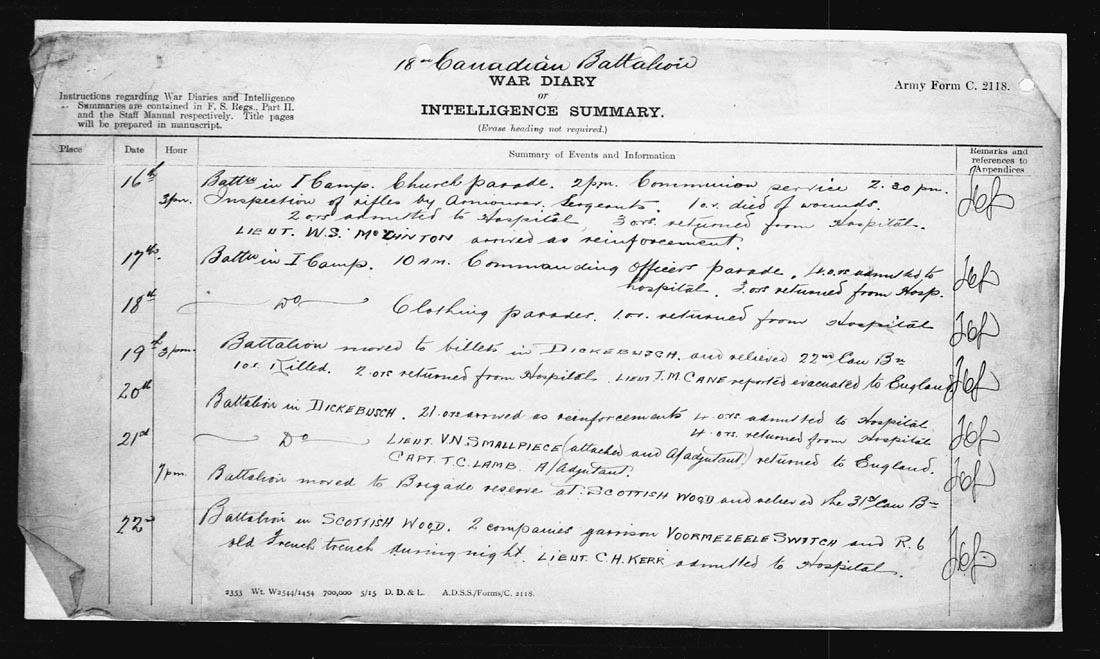 18th Canadian Battalion
WAR DIARY
or
INTELLIGENCE SUMMARY.
(Erase heading not required.)
Army Form C. 2118.
Instructions regarding War Diaries and Intelligence
Summaries are contained in F. S. Regs., Part II.
and the Staff Manual respectively. Title pages
will be prepared in manuscript.
Place Date Hour Summary of Events and Information Remarks and references to Appendices
16th Battn in I Camp. Church parade. 2 pm. Communion service 2.30 pm.
3 pm. Inspection of rifles by Armourer Sergeants. 1 o.r. died of wounds.
2 ors admitted to Hospital, 3 ors. returned from Hospital.
LIEUT. W.S. McCLINTON arrived as reinforcement.
17th. Battn in I Camp. 10 AM. Commanding Officers parade. 4 ors admitted to
hospital. 3 ors returned from Hosp.
18th Do Clothing parades. 1 or. returned from Hospital
19th 3 pm. Battalion moved to billets in DICKEBUSCH. and relieved 22nd Can Bn
1 or. Killed. 2. ors returned from Hospital. LIEUT J.M. CANE reported evacuated to England
20th Battalion in DICKEBUSCH. 21 ors arrived as reinforcements 4. ors admitted to Hospital.
4. ors. returned from Hospital
21st Do LIEUT. V.N. SMALLPIECE (attached and A/adjutant) returned to England.
CAPT. T.C. LAMB. A/Adjutant.
7 pm. Battalion moved to Brigade reserve at SCOTTISH WOOD and relieved the 31st Can Bn
22nd Battalion in SCOTTISH WOOD. 2 companies garrison VOORMEZEELE SWITCH and R.6
old French trench during night. LIEUT. C.H. KERR admitted to Hospital.
2353 Wt. W2544/1454 700,000 5/15 D. D. & L. A.D.S.S./Forms/C. 2118.